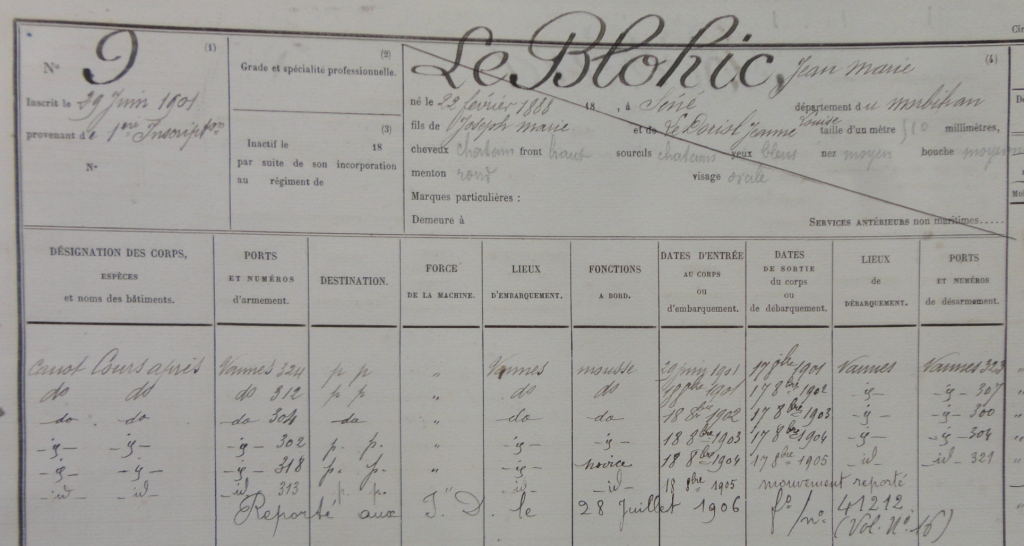 Cir
(1)
N° 9
Inscrit le 29 Juin 1901
provenant de 1ère Inscription
N°
(2)
Grade et spécialité professionnelle.
(3)
Inactif le 18
par suite de son incorporation
au régiment de
Le Blohic, Jean Marie (4)
né le 22 février 1888 18 , à Séné département du Morbihan
fils de Joseph Marie et de Le Doriol Jeanne Louise taille d'un mètre 510 millimètres,
cheveux chatains front haut sourcils chatains yeux bleus nez moyen bouche moyenne
menton rond visage ovale
Marques particulières :
Demeure à SERVICES ANTÉRIEURS non maritimes.....
DÉSIGNATION DES CORPS,
ESPÈCES
et noms des bâtiments.
PORTS
ET NUMÉROS
d'armement.
DESTINATION.
FORCE
DE LA MACHINE.
LIEUX
D'EMBARQUEMENT.
FONCTIONS
A BORD.
DATES D'ENTRÉE
AU CORPS
ou
d'embarquement.
DATES
DE SORTIE
du corps
ou
de débarquement.
LIEUX
de
DÉBARQUEMENT.
PORTS
ET NUMÉROS
de désarmement.
canot Cours après Vannes 324 p p " Vannes mousse 29 juin 1901 17 1901 Vannes Vannes 323 "
do do do 312 p p " do do 1901 17 8bre 1902 -id- -id- 307 "
do do do 304 do " do do 18 8bre 1902 17 8bre 1903 -id- -id- 300 "
-id- -id- -id- 302 p. p. " -id- -id- 18 8bre 1903 17 8bre 1904 -id- -id- 304 "
-id- -id- -id- 318 p. p. " -id- novice 18 8bre 1904 17 8bre 1905 -id- -id- 321 "
-id- -id- -id- 313 p p. " -id- -id- 18 8bre 1905 mouvement reporté
Reporté aux I. D. le 28 Juillet 1906 fo/no. 41212
(Vol. No. 16)